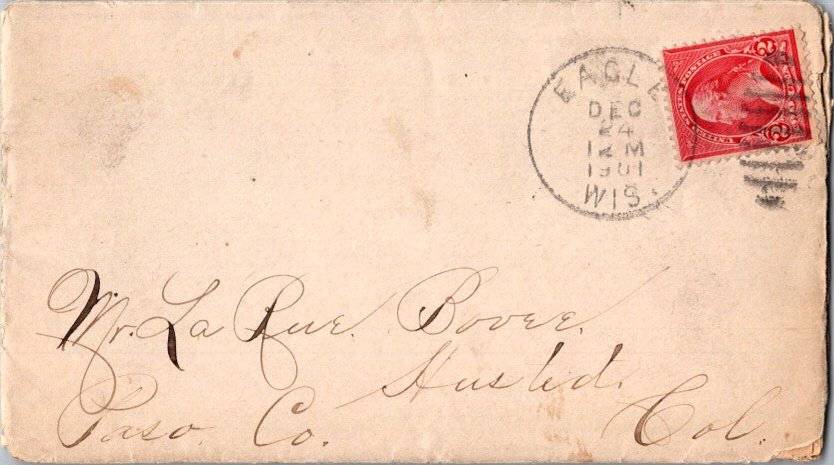 EAGLE
DEC
24
12 M
1901
WIS.
UNITED STATES POSTAGE
2 2
Mr. La Rue. Bovee.
Husted.
Paso Co. Col.